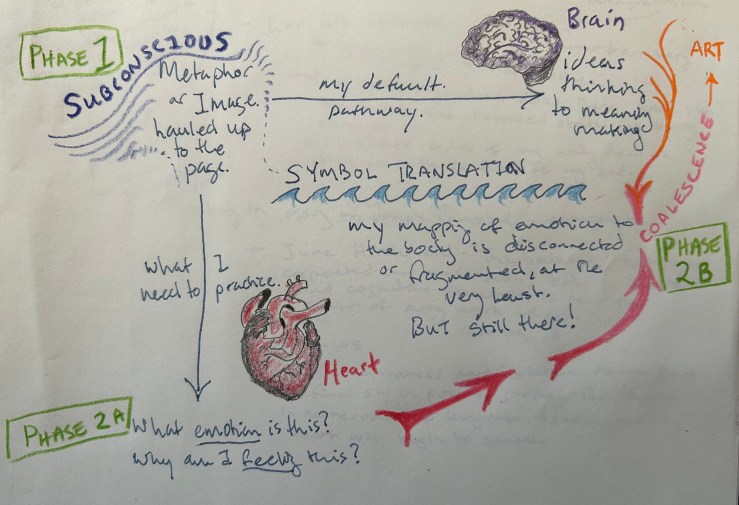 PHASE 1
SUBCONSCIOUS
Metaphor
or Image.
hauled up
to the
page.
my default.
pathway.
Brain
ideas
thinking
to meaning
making
ART
COALESCENCE
SYMBOL TRANSLATION
my mapping of emotion to
the body is disconnected
or fragmented, at the
very least.
BUT still there!
PHASE
2B
what I
need to practice.
Heart
PHASE 2A
What emotion is this?
Why am I feeling this?